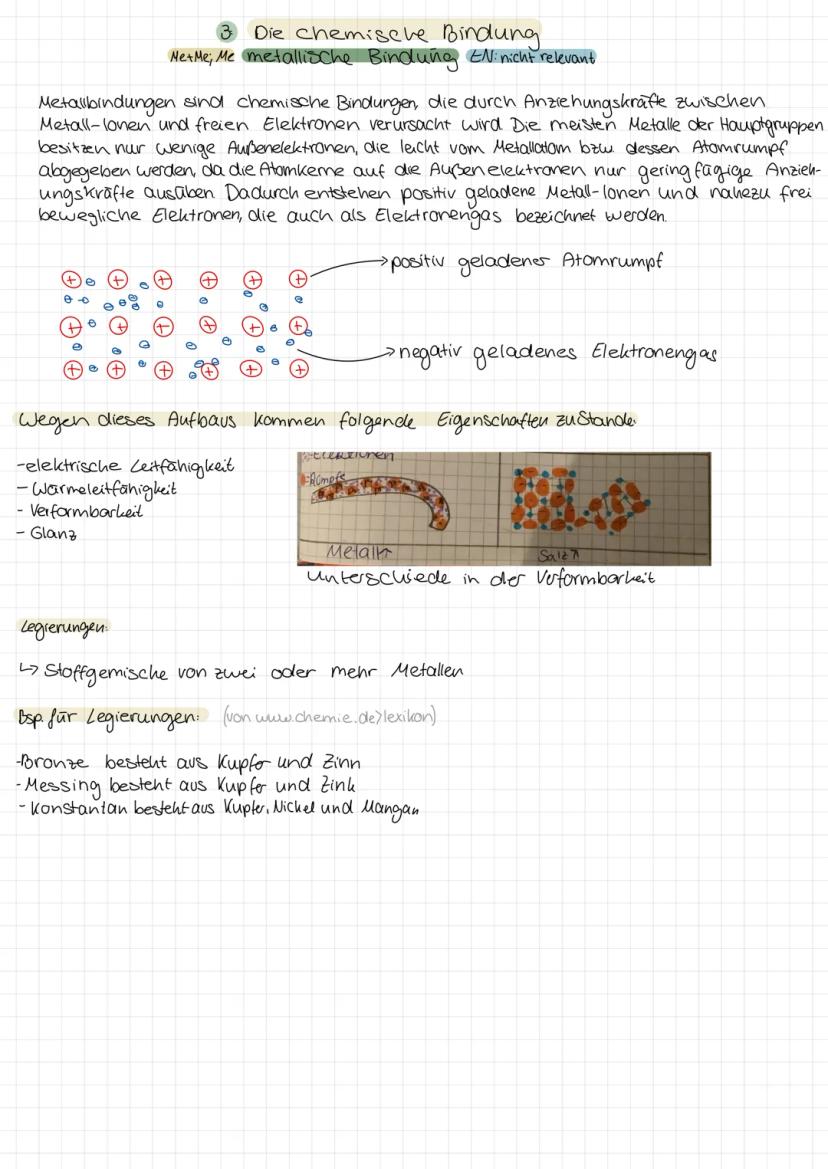 3 Die chemische Bindung
Me+Me; Me metallische Bindung EN: nicht relevant
Metallbindungen sind chemische Bindungen, die durch Anziehungskräfte zwischen
Metall-Ionen und freien Elektronen verursacht wird. Die meisten Metalle der Hauptgruppen
besitzen nur wenige Außenelektronen, die leicht vom Metallatom bzw. dessen Atomrumpf
abgegeben werden, da die Atomkerne auf die Außenelektronen nur geringfügige Anzieh-
ungskräfte ausüben. Dadurch entstehen positiv geladene Metall-Ionen und nahezu frei
bewegliche Elektronen, die auch als Elektronengas bezeichnet werden.
positiv geladener Atomrumpf
negativ geladenes Elektronengas
Wegen dieses Aufbaus kommen folgende Eigenschaften zustande:
-elektrische Leitfähigkeit
- Wärmeleitfähigkeit
- Verformbarkeit
- Glanz
-Elektronen
-Rümpfe
Metall↑
Salz↑
Unterschiede in der Verformbarkeit
Legierungen:
↳ Stoffgemische von zwei oder mehr Metallen
Bsp. für Legierungen: (von www.chemie.de>lexikon)
-Bronze besteht aus Kupfer und Zinn
- Messing besteht aus Kupfer und Zink
- Konstantan besteht aus Kupfer, Nickel und Mangan